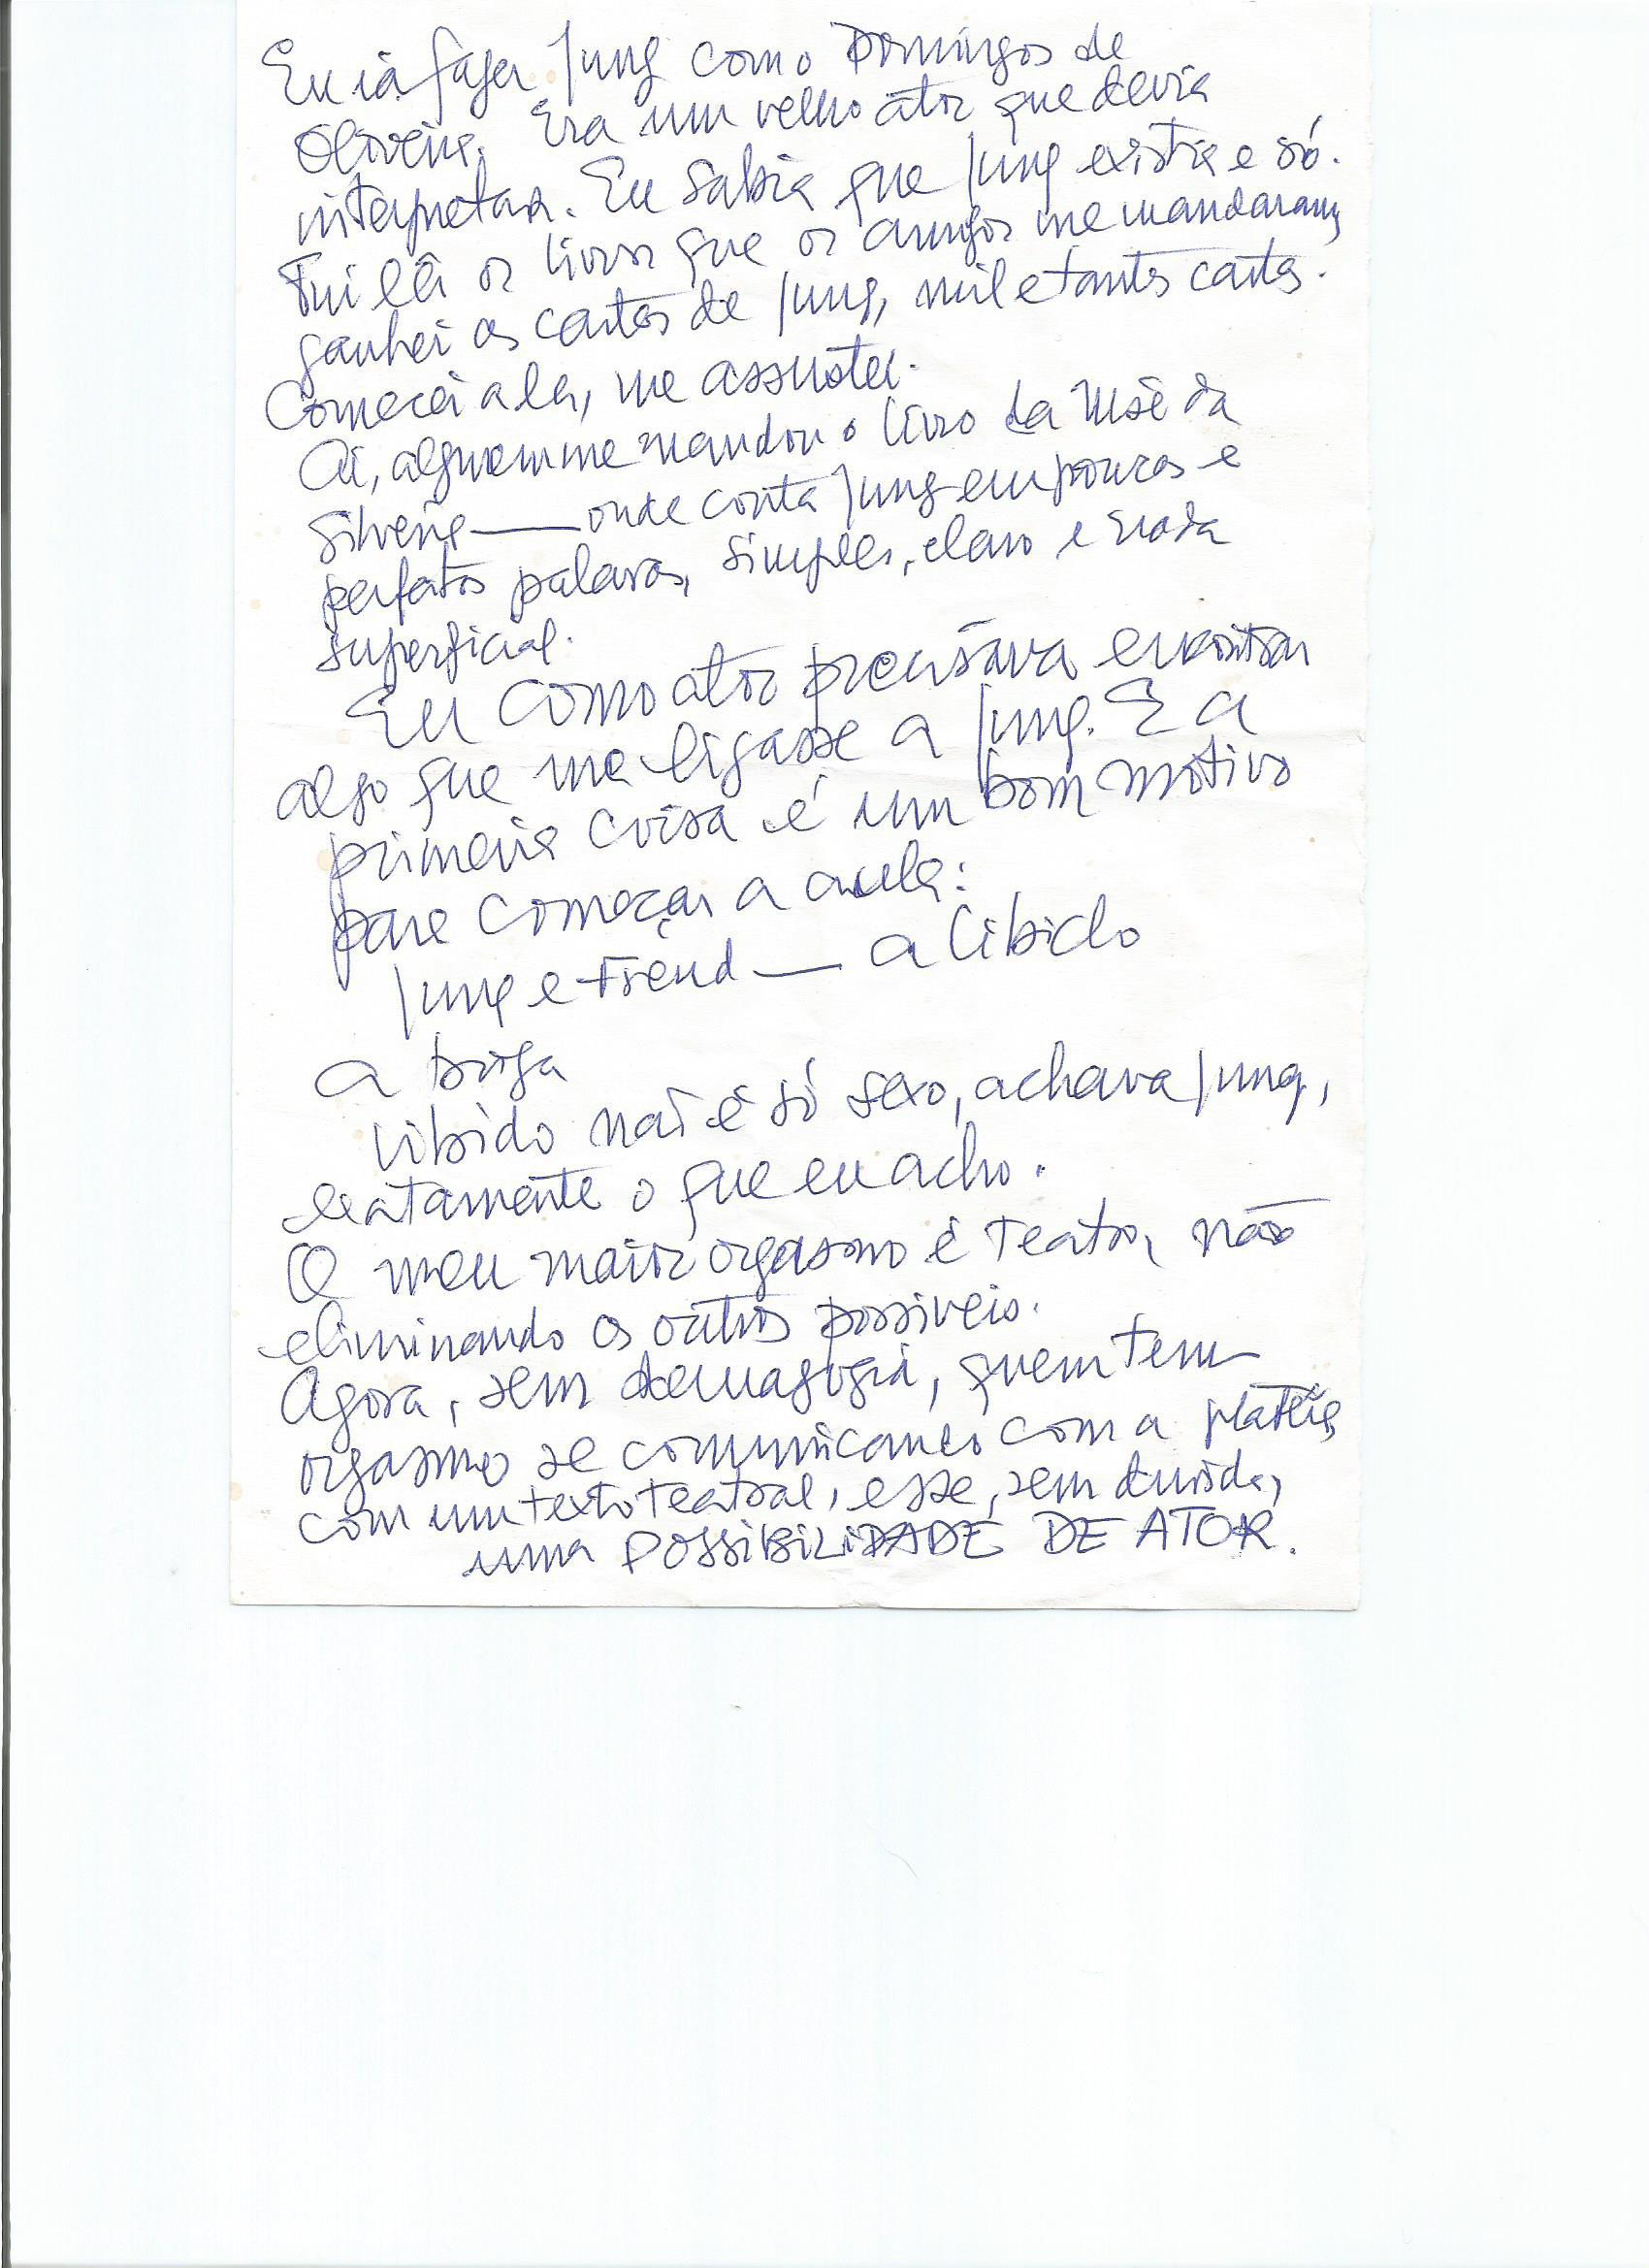 Eu ia fazer Jung como Domingos de
Oliveira. Era um velho ator que devia
interpretar. Eu sabia que Jung existia e só.
Fui lê os livros que os amigos me mandaram,
ganhei as cartas de Jung, mil e tantas cartas.
Comecei a ler, me assustei.
Aí, alguem me mandou o livro da Nise da
Silveira — onde conta Jung em poucas e
perfeitas palavras, simples, claro e nada
superficial.
Eu como ator precisava encontrar
algo que me ligasse a Jung. E a
primeira coisa é um bom motivo
para começar a aula:
Jung e Freud — a libido
a briga
libido não é só sexo, achava Jung,
exatamente o que eu acho.
O meu maior orgasmo é teatro, não
eliminando os outros possiveis.
Agora, sem demagogia, quem tem
orgasmo se comunicando com a platéia
com um texto teatral, esse, sem duvida,
uma POSSIBILIDADE DE ATOR.